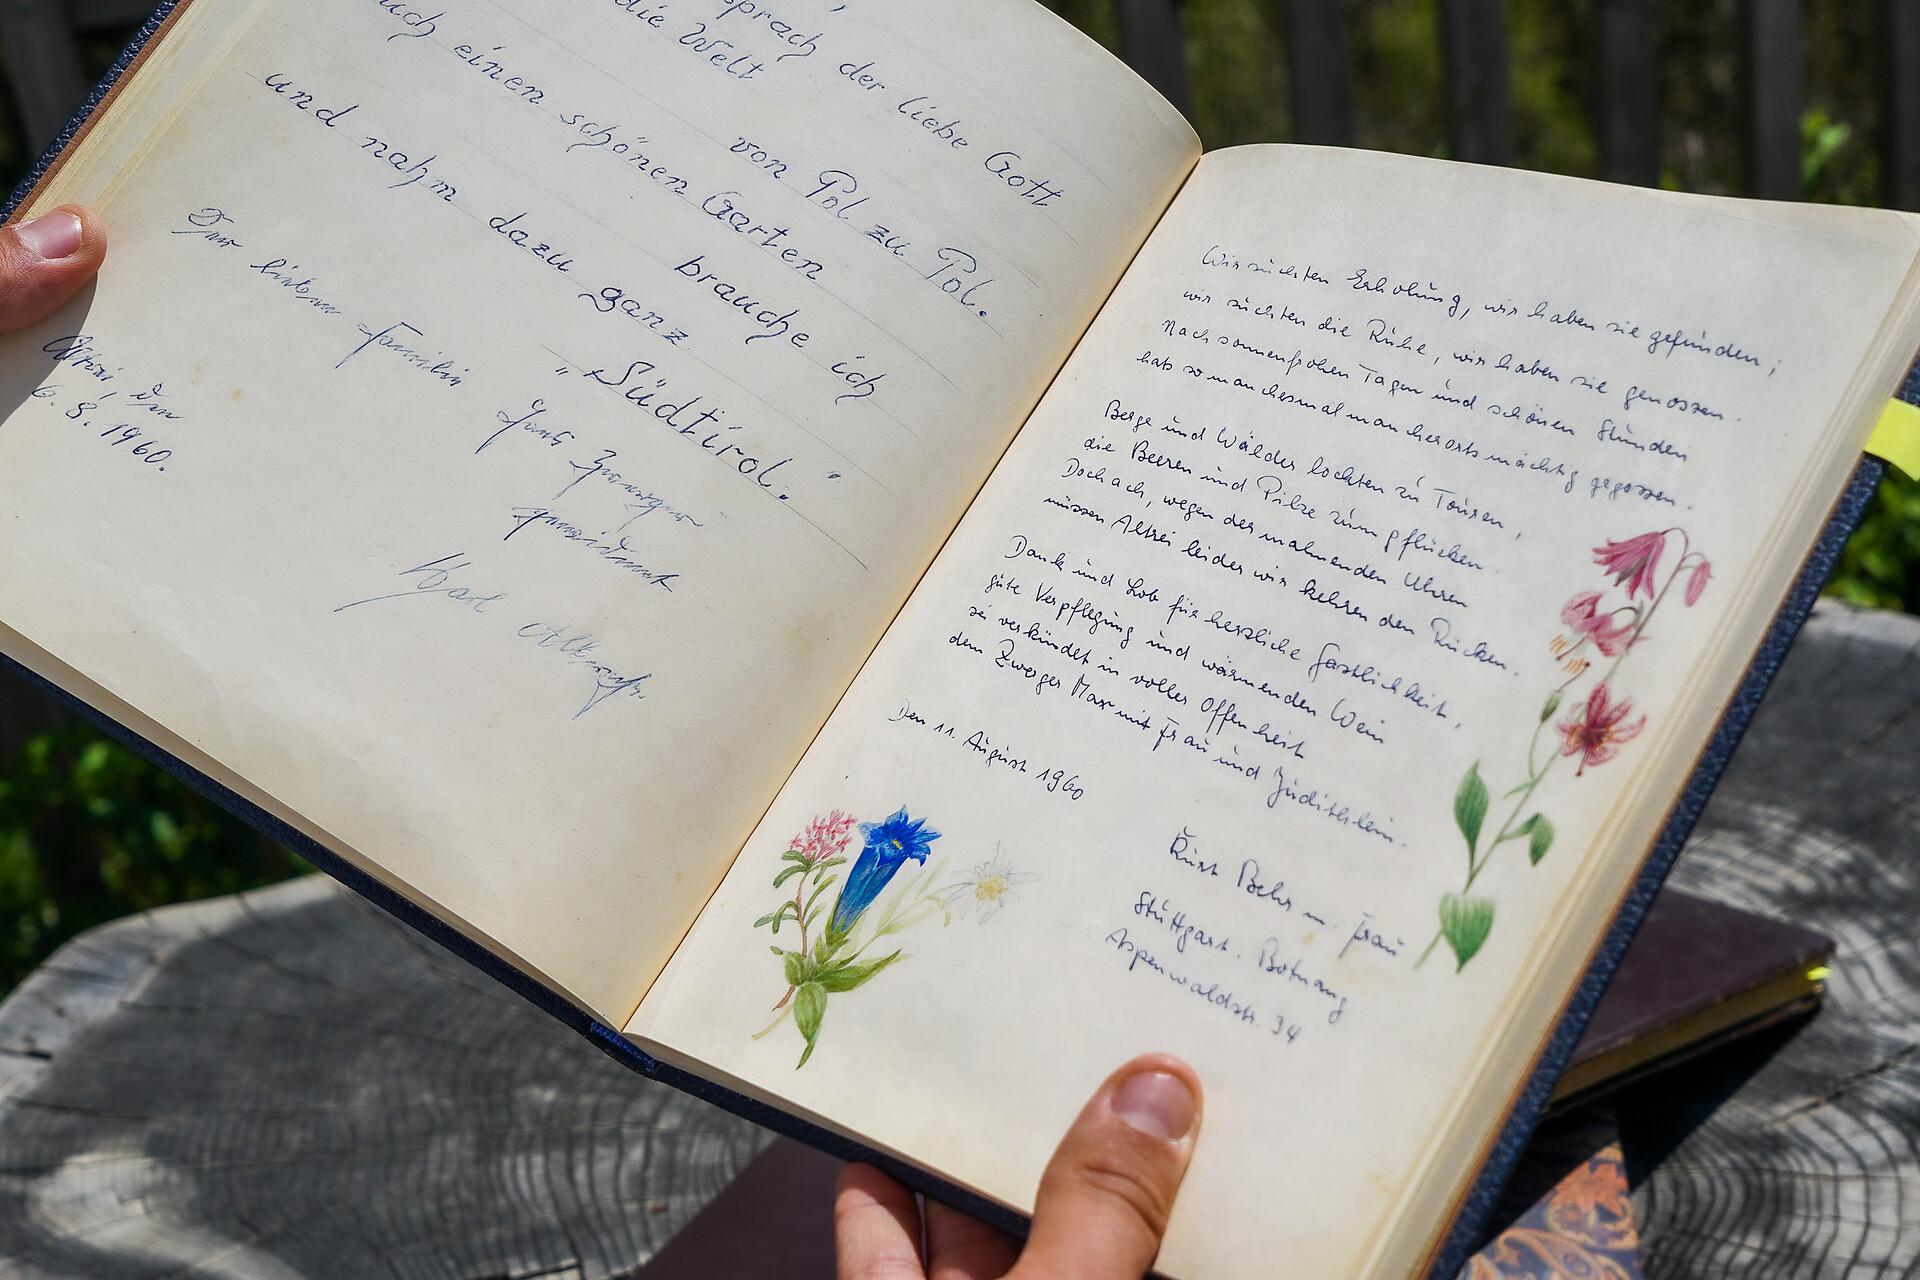 sprach der liebe Gott
die Welt
von Pol zu Pol.
auch einen schönen Garten
brauche ich
und nahm dazu ganz
„Südtirol."
Der lieben Familie
Altrei, den
6. 8. 1960.
Karl
Wir suchten Erholung, wir haben sie gefunden;
wir suchten die Ruhe, wir haben sie genossen.
Nach sonnenfrohen Tagen und schönen Stunden
hats so manchesmal man herorts mächtig gegossen.
Berge und Wälder lockten zu Touren,
die Beeren und Pilze zum pflücken.
Doch ach, wegen der mahnenden Uhren
müssen Altrei leider wir kehren den Rücken.
Dank und Lob für herzliche Gastlichkeit,
gute Verpflegung und wärmenden Wein
sei verkündet in voller Offenheit
dem Zwerger Max mit Frau und Judithlein.
Den 11. August 1960
Kurt Behr m. Frau
Stuttgart. Botnang
Aspenwaldstr. 34